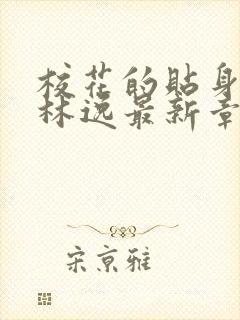 校花的贴身
林逸最新章
宋京雅